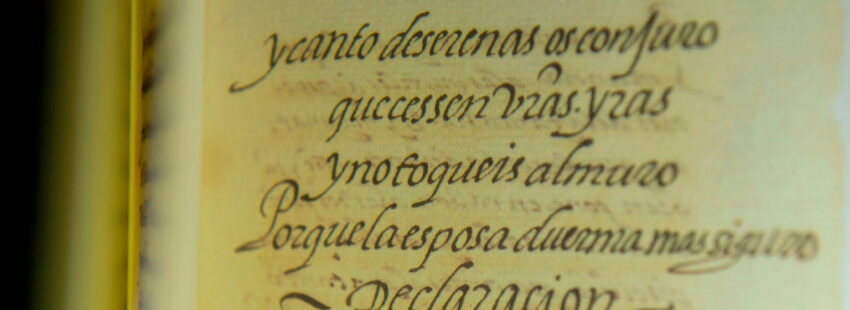 y canto de serenas os conjuro
que cessen vr̃as yras
y no toqueis al muro
Porque la esposa duerma mas siguro
Declaracion